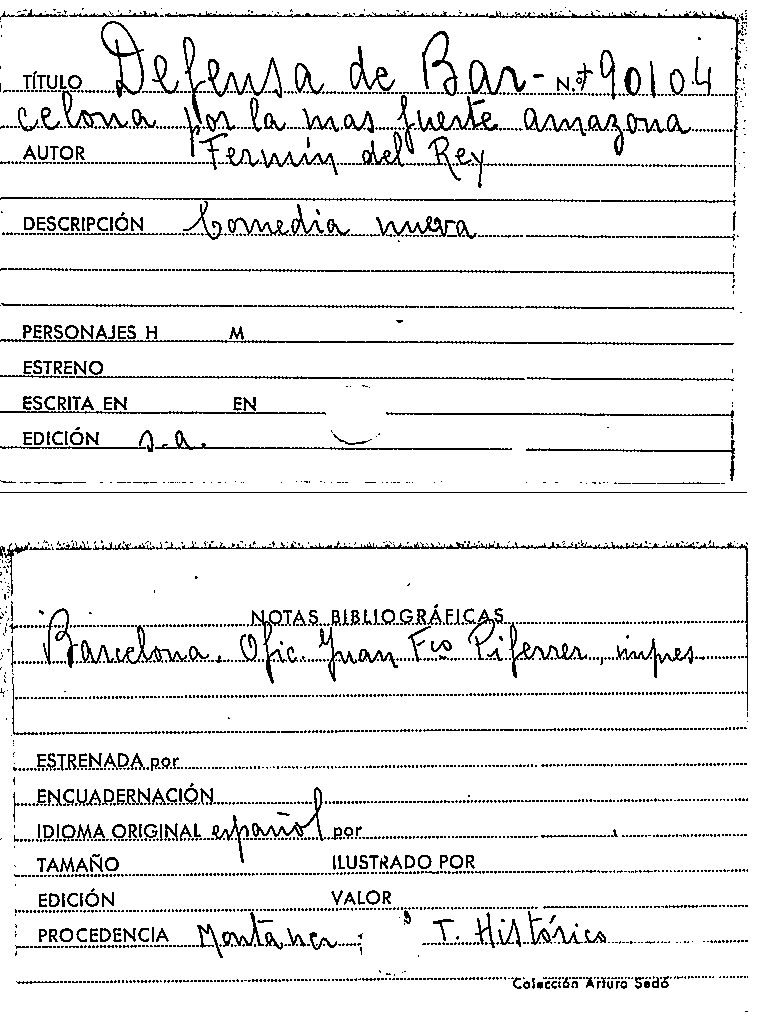 TÍTULO Defensa de Bar- N.º 90104
celona por la mas fuerte amazona
AUTOR Fermín del Rey
DESCRIPCIÓN Comedia nueva
PERSONAJES H M
ESTRENO
ESCRITA EN EN
EDICIÓN s.a.
NOTAS BIBLIOGRÁFICAS
Barcelona. Ofic. Juan Fco Piferrer, impres
ESTRENADA por
ENCUADERNACIÓN
IDIOMA ORIGINAL español por
TAMAÑO ILUSTRADO POR
EDICIÓN VALOR
PROCEDENCIA Montaner; T. Histórico
Colección Arturo Sedó